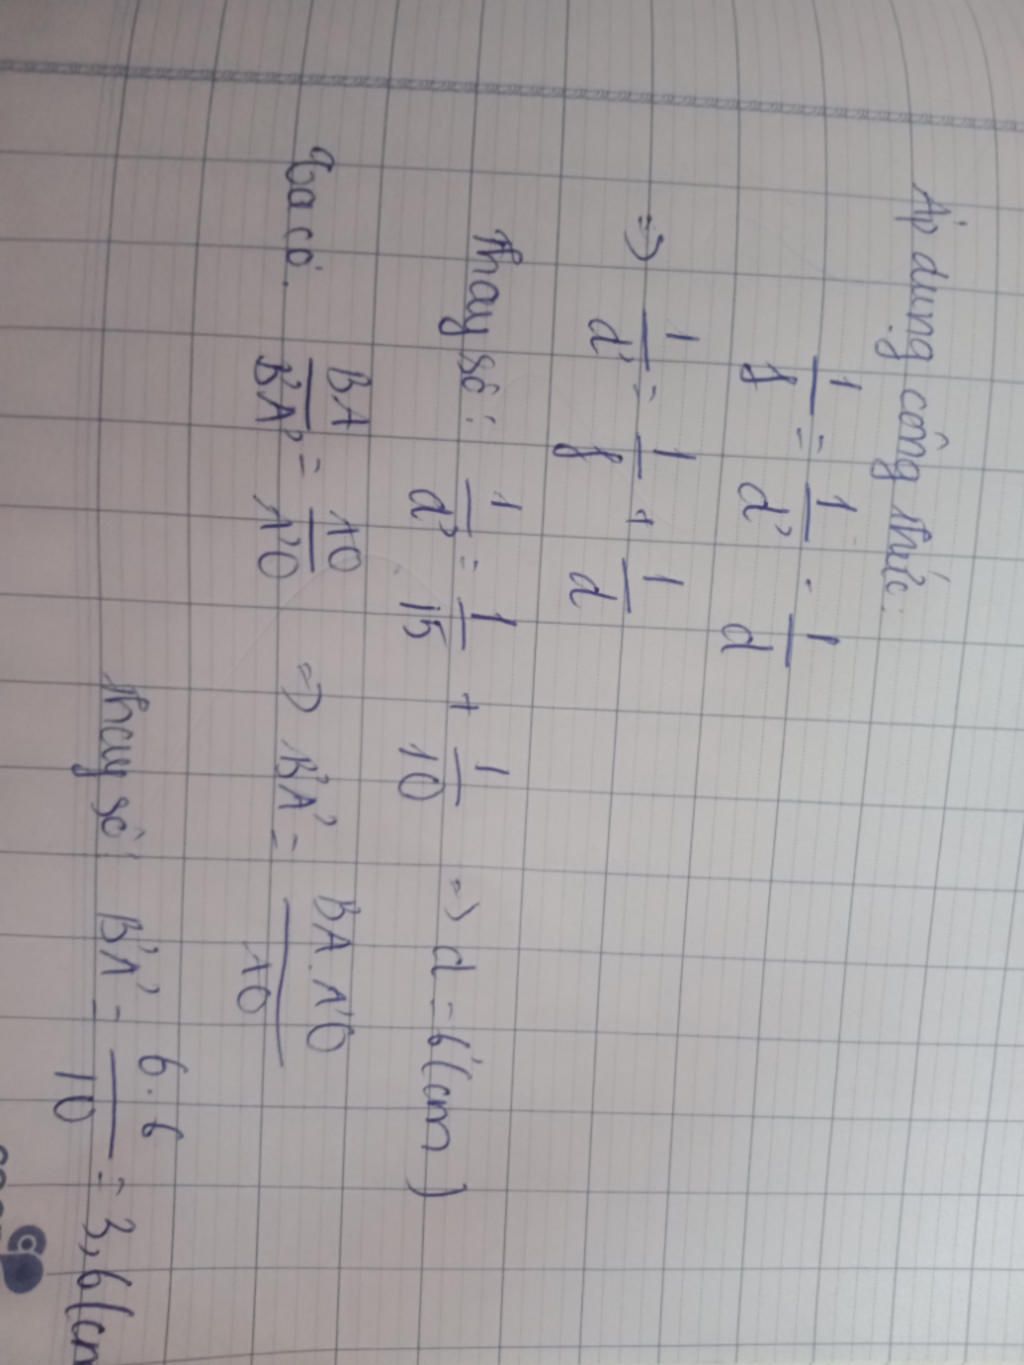 Áp dụng công thức:
1/f = 1/d' - 1/d
=> 1/d' = 1/f + 1/d
Thay số: 1/d' = 1/15 + 1/10 => d = 6 (cm)
Ta có: BA/B'A' = AO/A'O => B'A' = BA.A'O/AO
Thay số: B'A' = 6.6/10 = 3,6 (cm